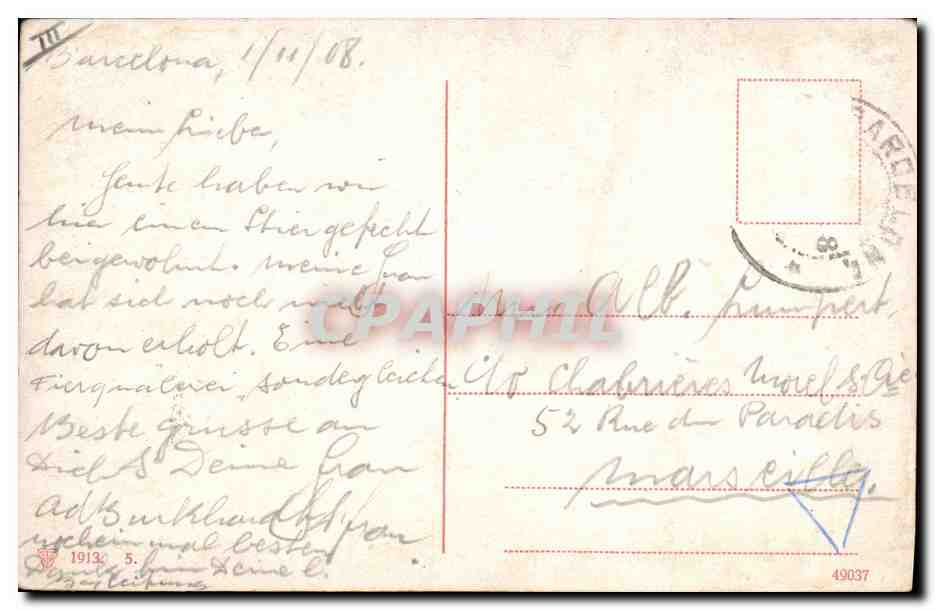 III
Barcelona, 1/11/08.
Mein Lieber,
Heute haben wir
hier einen Stiergefecht
beigewohnt. Meine Frau
hat sich noch nicht
davon erholt. Eine
Tierquälerei sondergleichen
Beste Grüsse an
Dich & Deine Frau
Ad Burkhardt & Frau
nocheinmal besten
Dank für Deine l.
Begleitung
1913. 5.
BARCELONA
8
Alb. Lumpert,
c/o Chabrières Morel & Cie
52 Rue du Paradis
Marseille.
49037
CPAPHIL